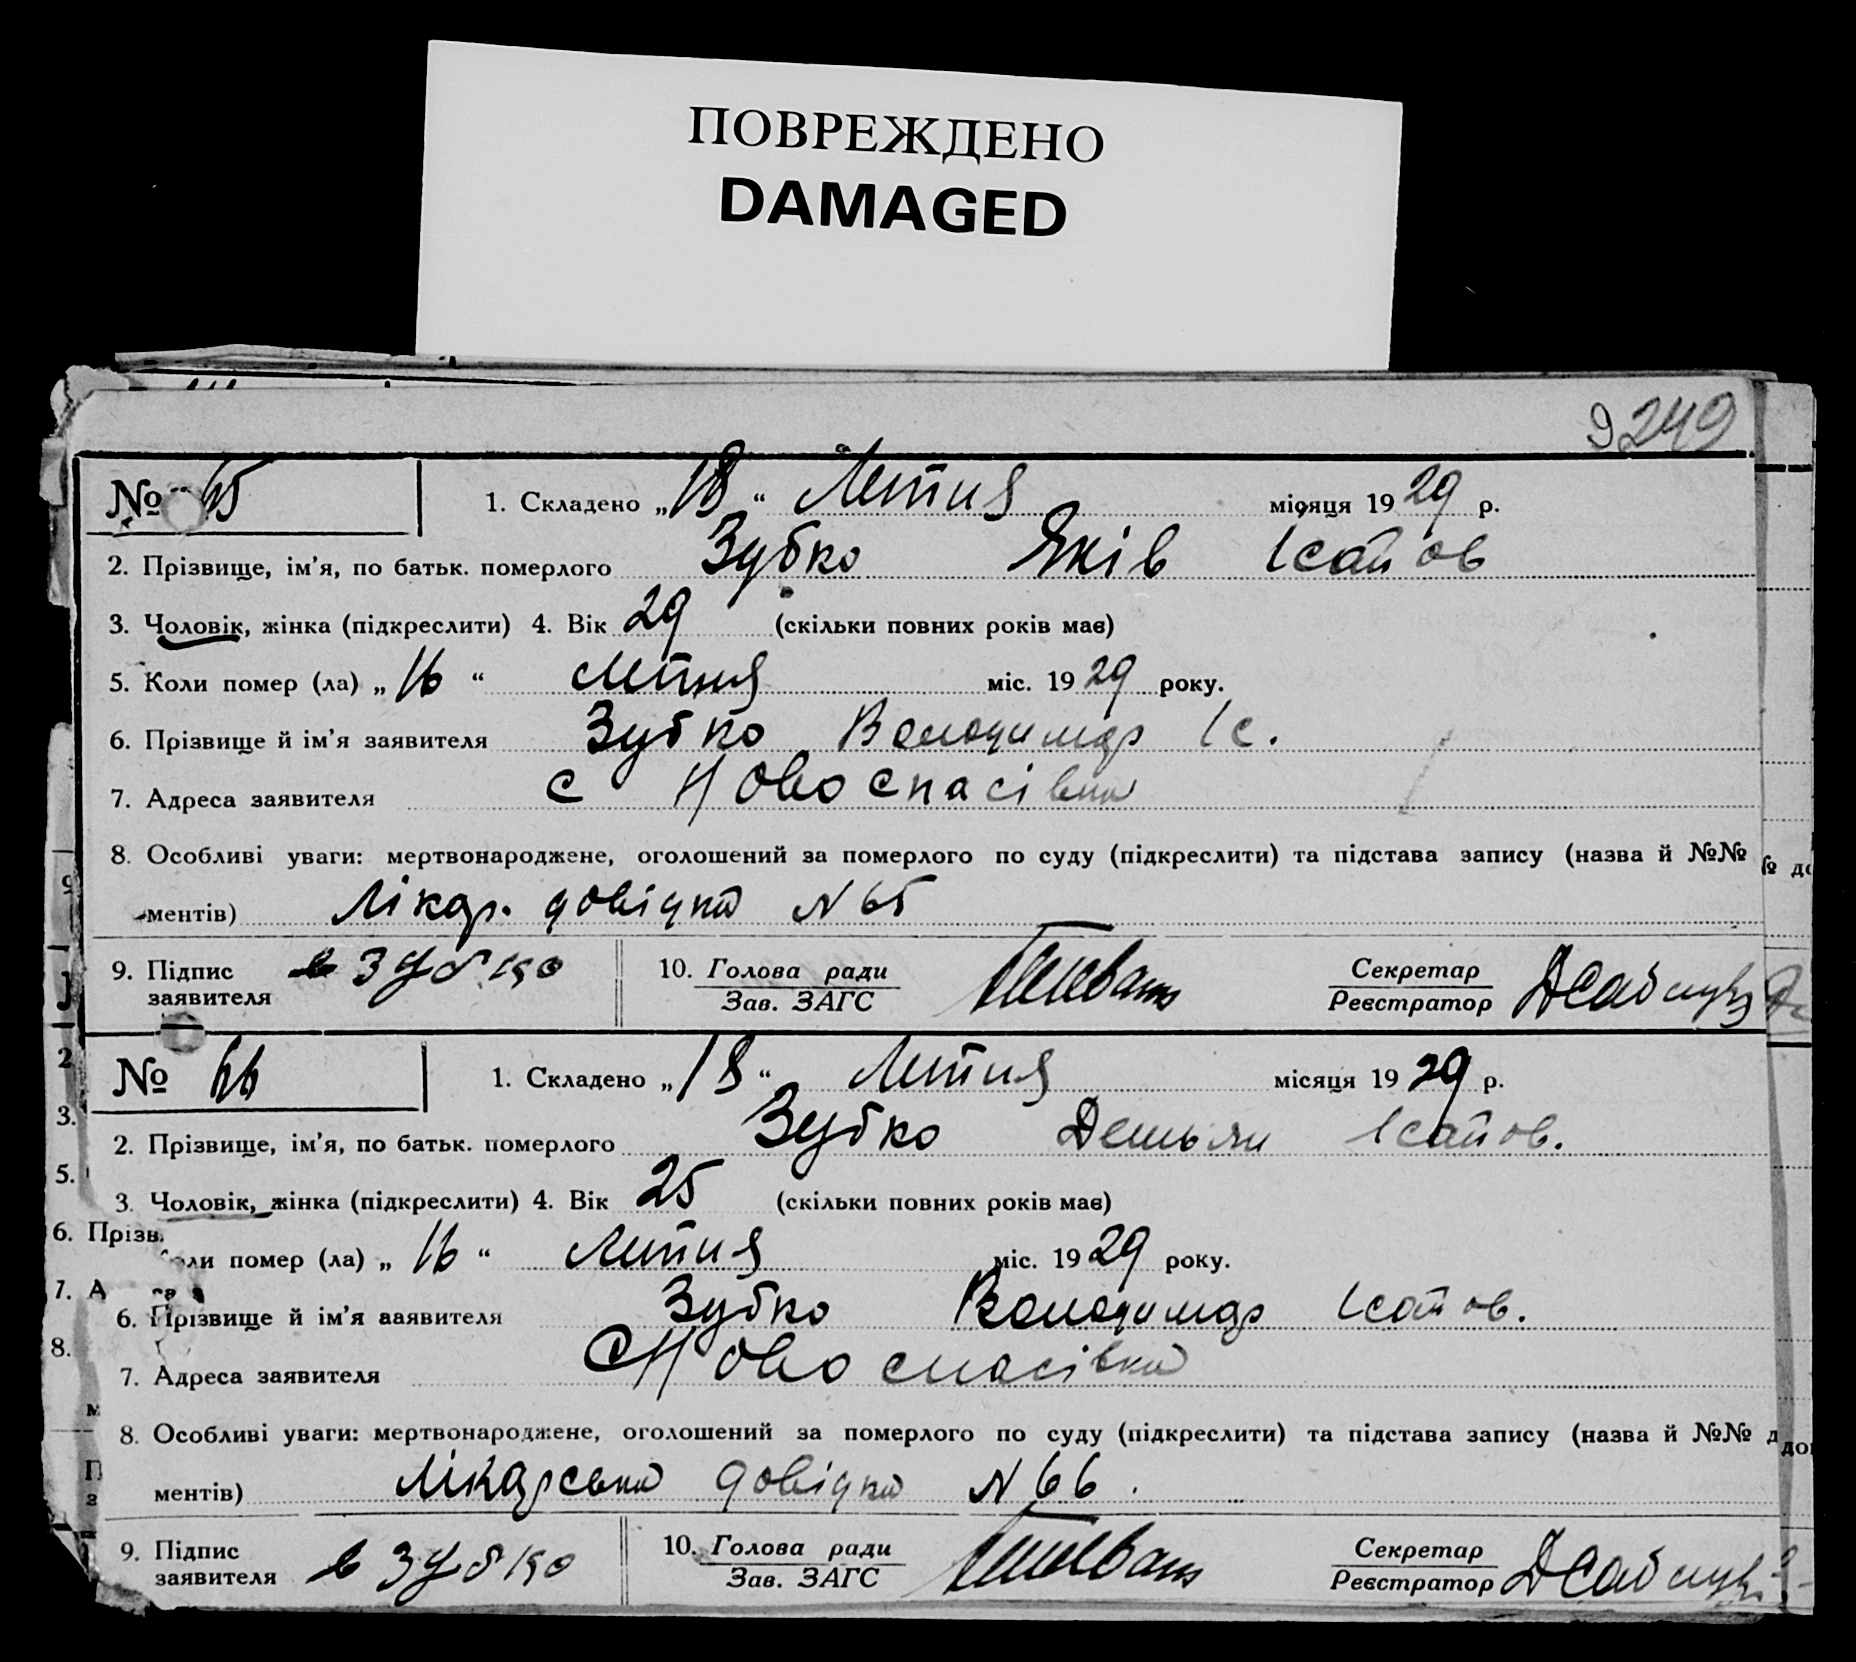 ПОВРЕЖДЕНО
DAMAGED
9249
№ 65 1. Складено „18“ Летня місяця 1929 р.
2. Прізвище, ім'я, по батьк. померлого Зубко Яків Ісаїов
3. Чоловік, жінка (підкреслити) 4. Вік 29 (скільки повних років має)
5. Коли помер (ла) „16“ Летня міс. 1929 року.
6. Прізвище й ім'я заявителя Зубко Володимир Іс.
7. Адреса заявителя с Новоспасівка
8. Особливі уваги: мертвонароджене, оголошений за померлого по суду (підкреслити) та підстава запису (назва й №№
ментів) Лікар. довідка N 65
9. Підпис заявителя в Зубко 10. Голова ради Зав. ЗАГС Секретар Реєстратор
№ 66 1. Складено „18“ Летня місяця 1929 р.
2. Прізвище, ім'я, по батьк. померлого Зубко Демьян Ісаїов.
3. Чоловік, жінка (підкреслити) 4. Вік 25 (скільки повних років має)
помер (ла) „16“ Летня міс. 1929 року.
6. Прізвище й ім'я заявителя Зубко Володимир Ісаїов.
7. Адреса заявителя с Новоспасівка
8. Особливі уваги: мертвонароджене, оголошений за померлого по суду (підкреслити) та підстава запису (назва й №№
ментів) Лікарська довідка N 66.
9. Підпис заявителя в Зубко 10. Голова ради Зав. ЗАГС Секретар Реєстратор